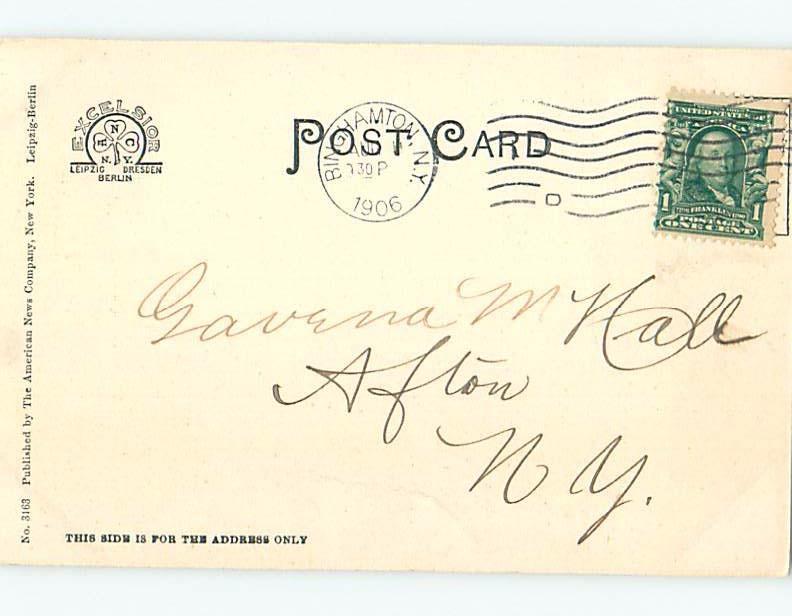 EXCELSIOR
A N C
N.Y.
LEIPZIG DRESDEN
BERLIN
POST CARD
BINGHAMTON, N.Y.
30 P
1906
D
UNITED STATES OF
1 FRANKLIN 1
POSTAGE
ONE CENT
Gavena M Hall
Afton
N Y.
THIS SIDE IS FOR THE ADDRESS ONLY
No. 3163 Published by The American News Company, New York. Leipzig-Berlin